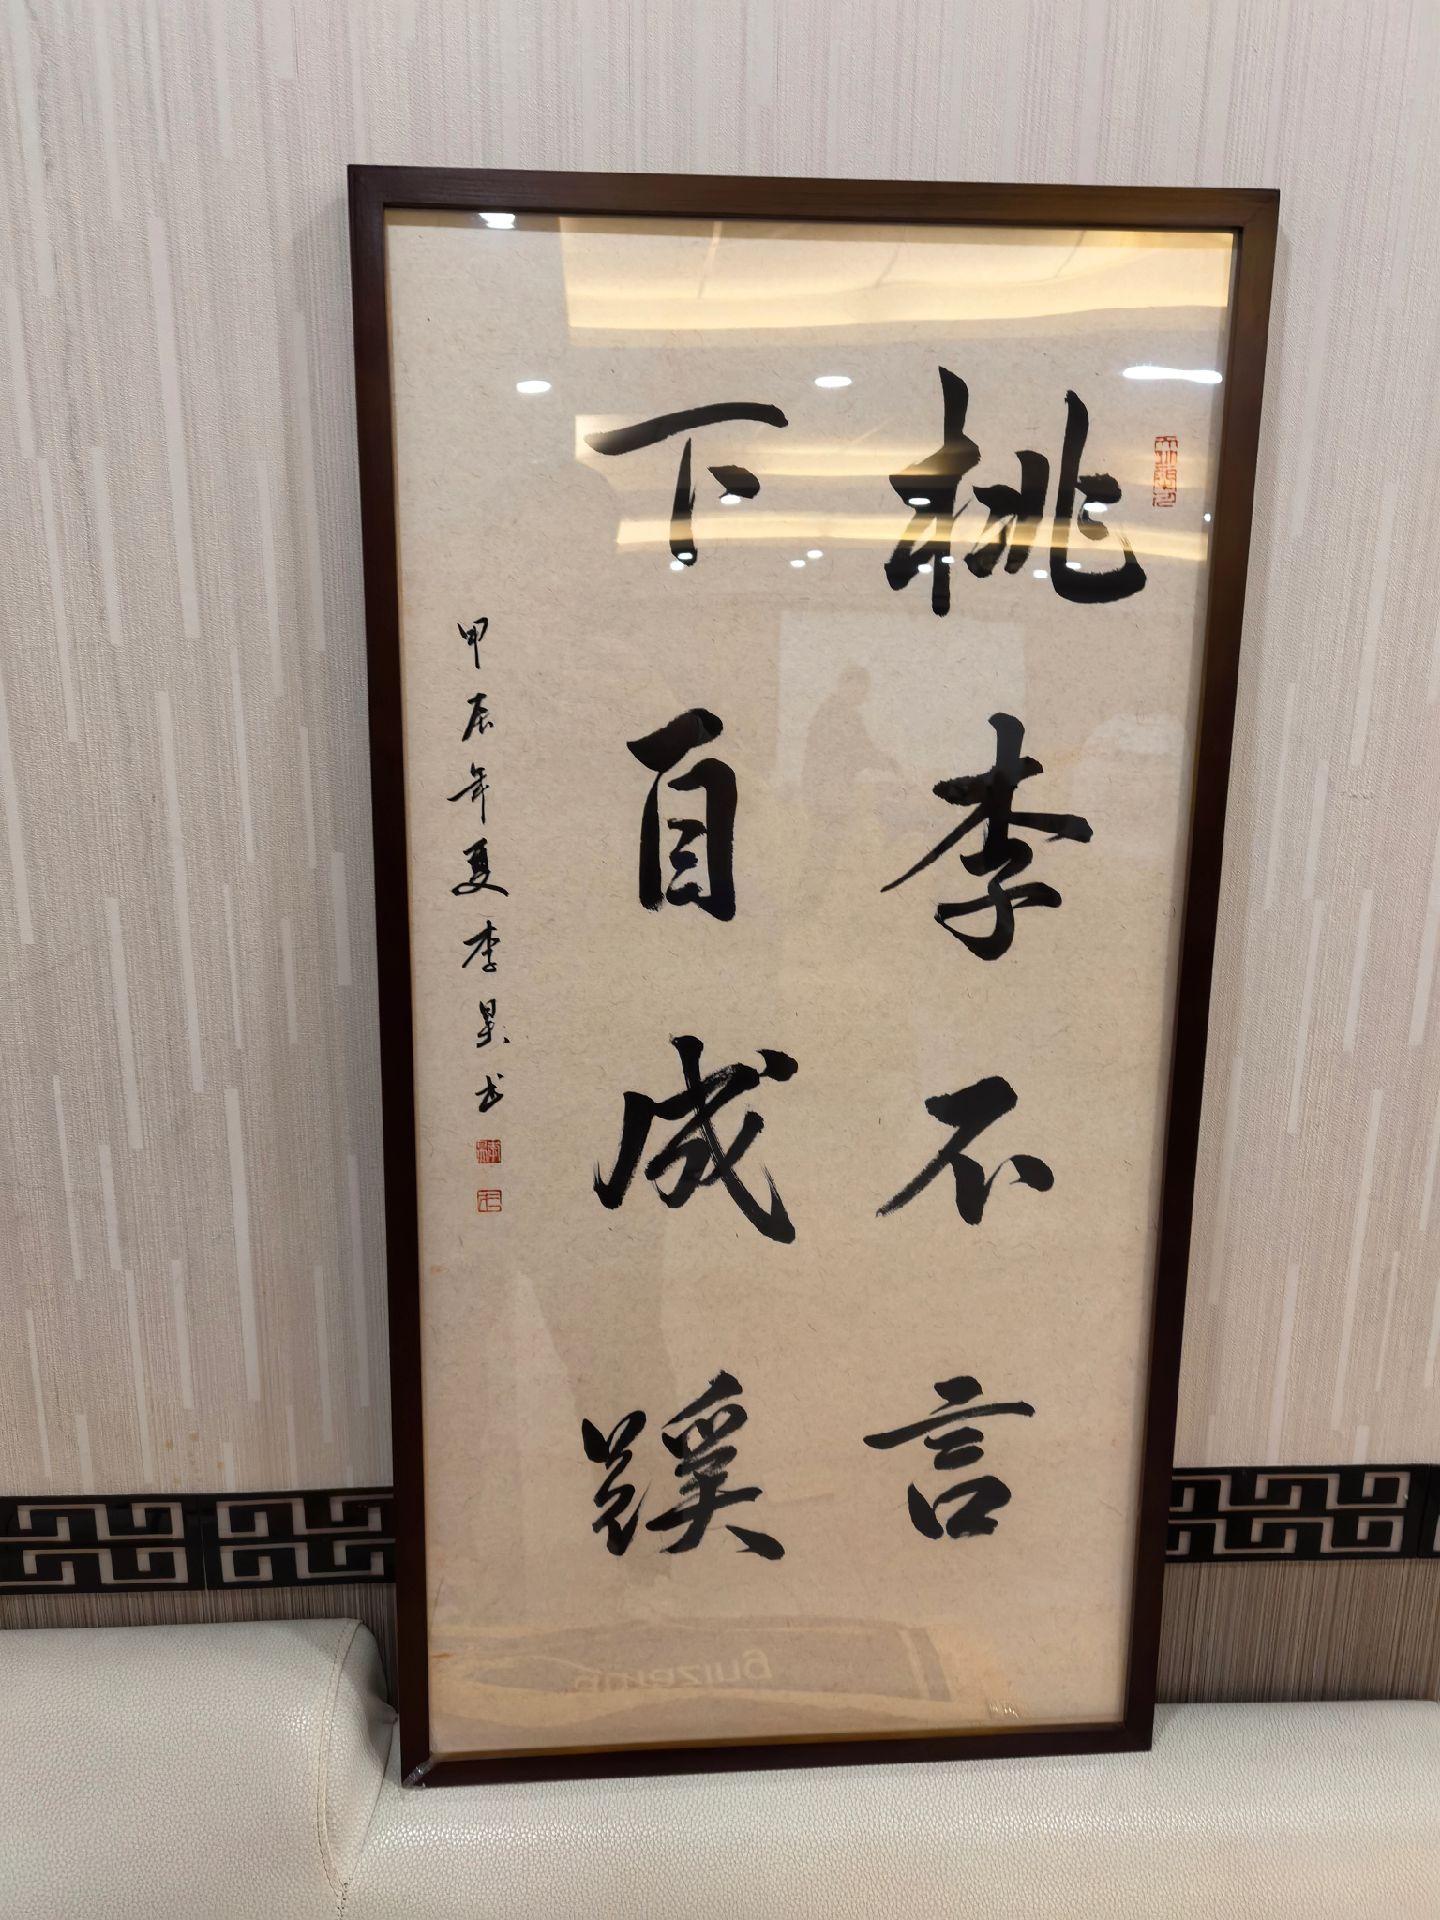 桃李不言
下自成蹊
甲辰年夏李昊书